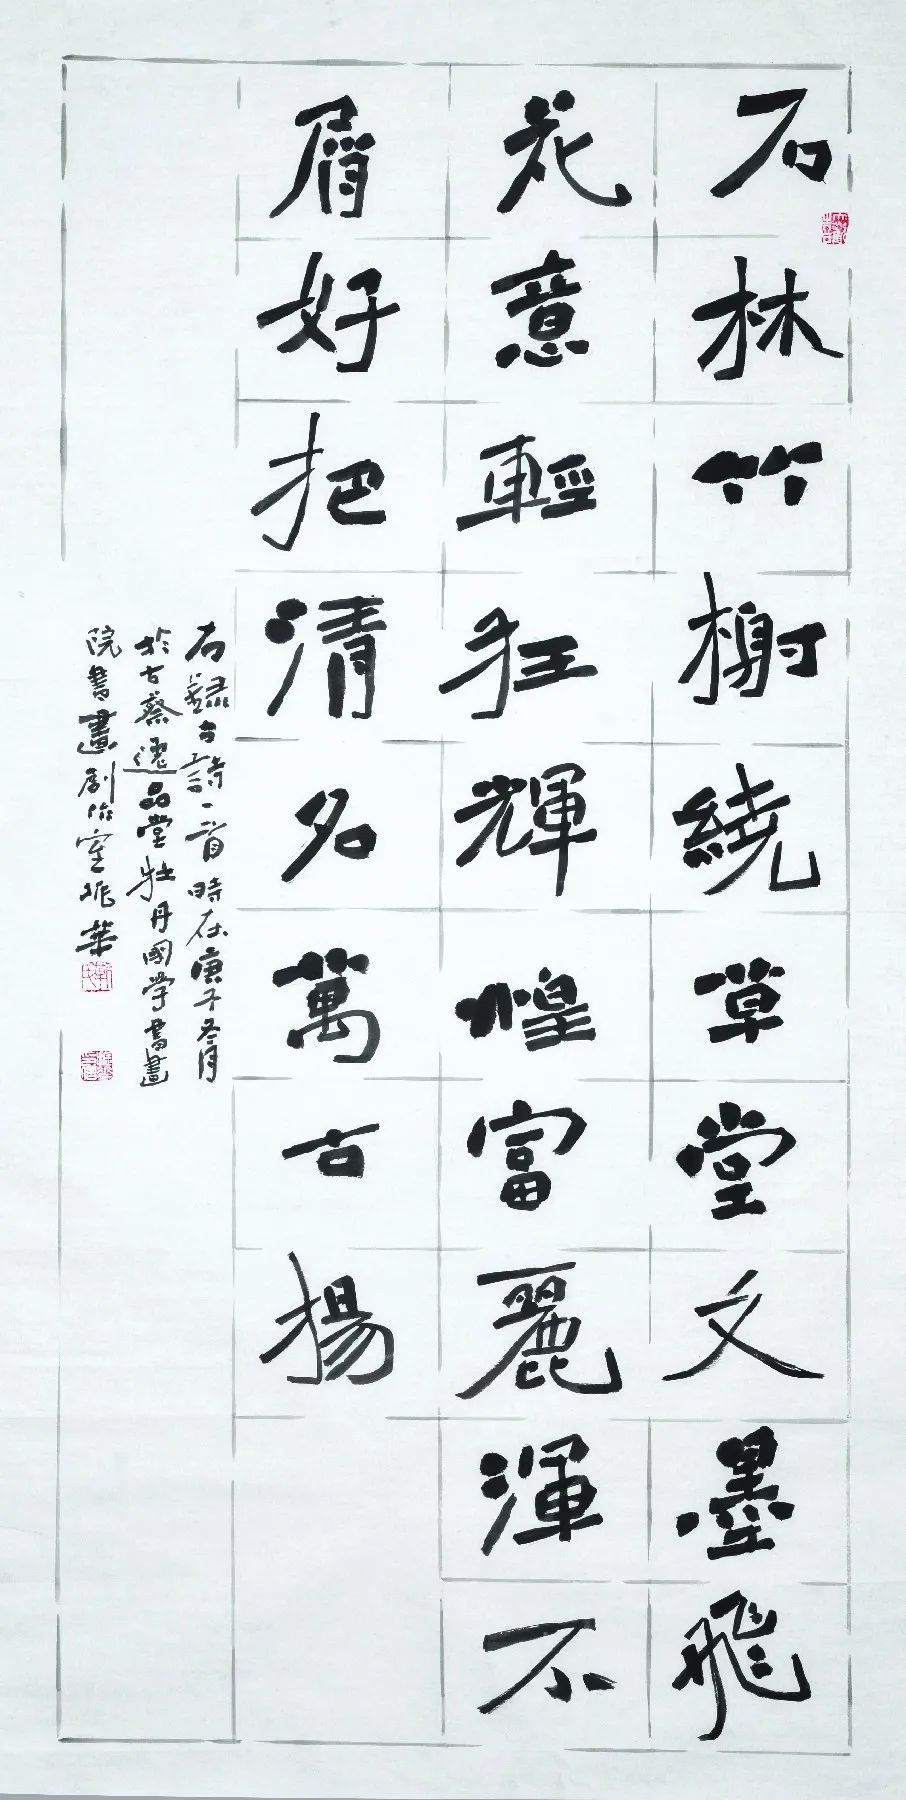 石林竹榭繞草堂文墨飛
花意輕狂輝煌富麗渾不
屑好把清名萬古揚
右錄古詩一首時在庚子冬月
於古蔡逸品堂牡丹國學書畫
院書畫創作室